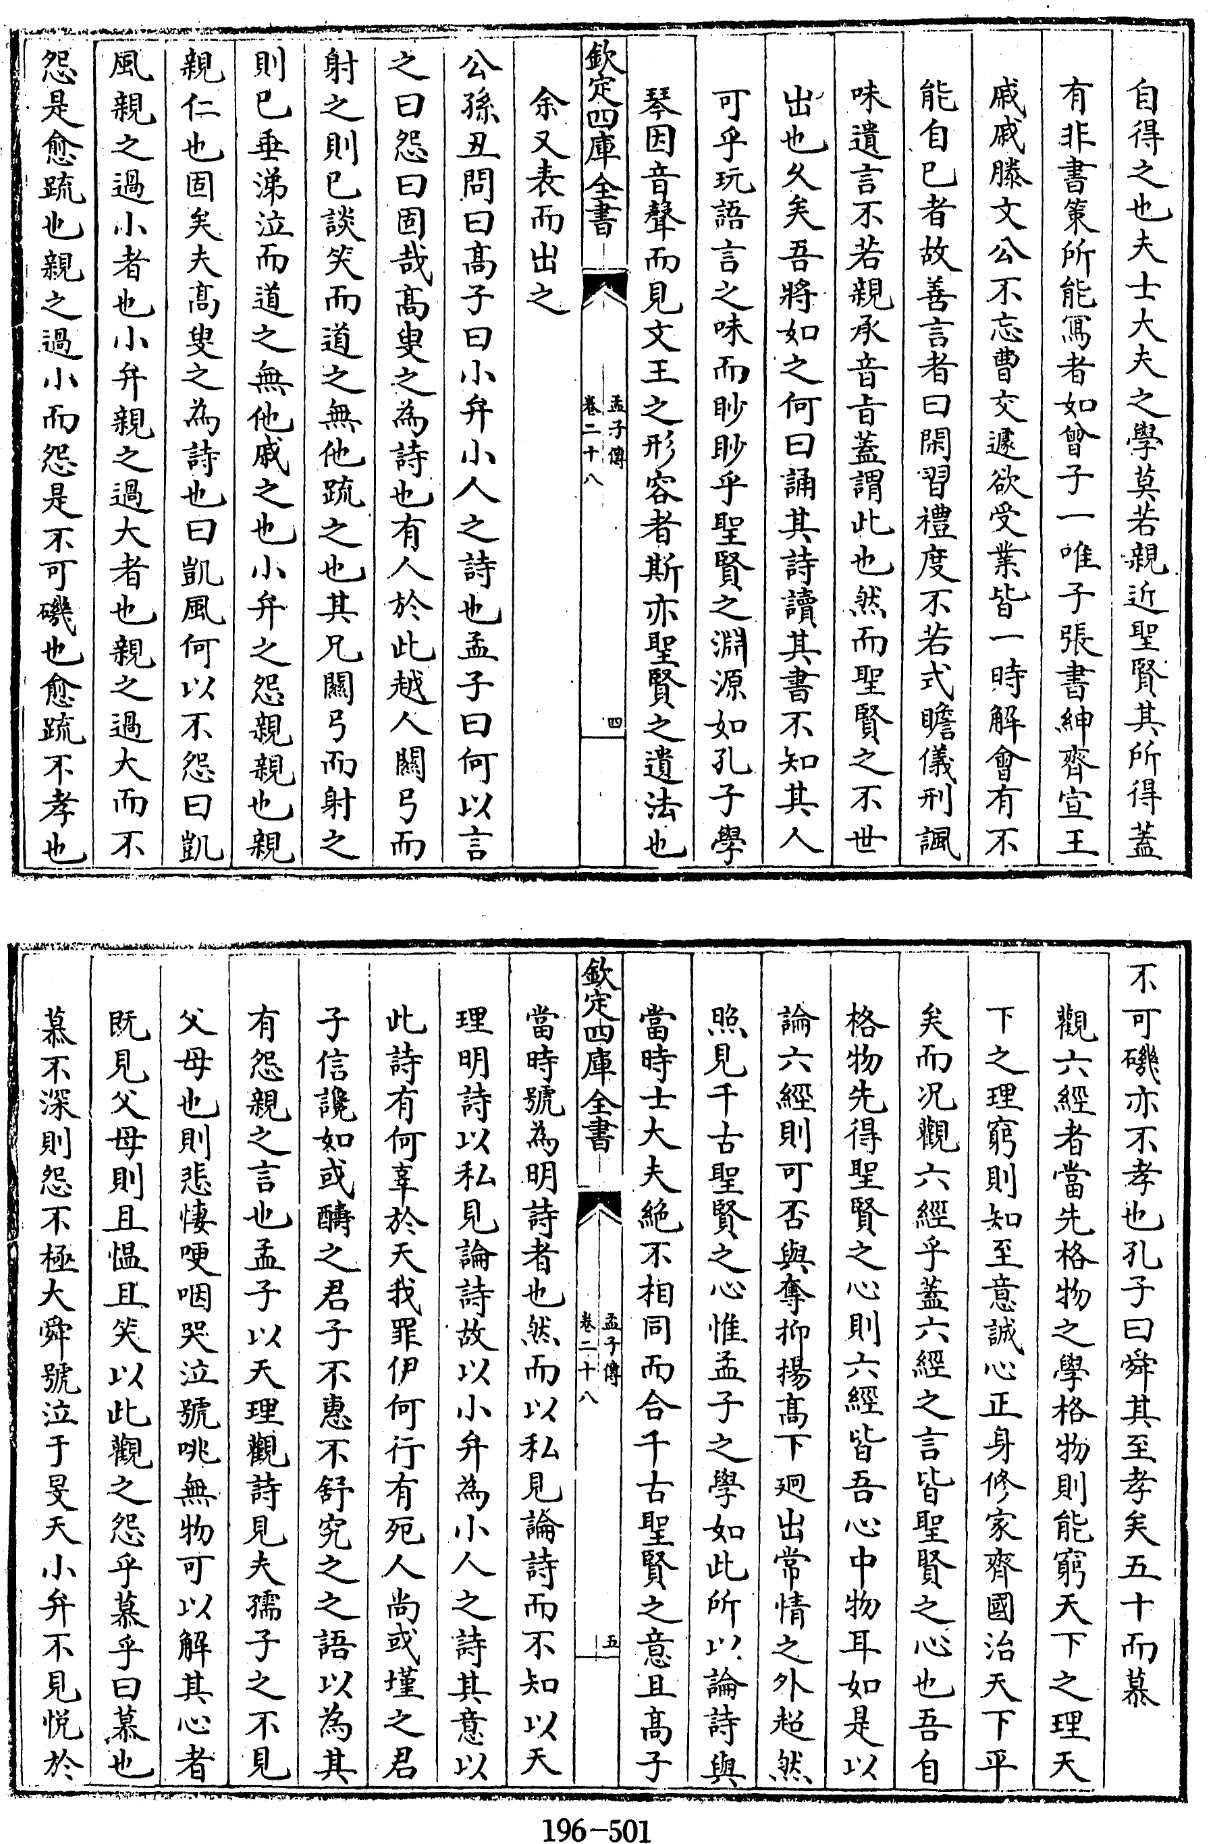 自得之也夫士大夫之學莫若親近聖賢其所得蓋
有非書策所能寫者如曾子一唯子張書紳齊宣王
戚戚滕文公不忘曹交遽欲受業皆一時解會有不
能自已者故善言者曰閑習禮度不若式瞻儀刑諷
味遺言不若親承音㫖蓋謂此也然而聖賢之不世
出也久矣吾將如之何曰誦其詩讀其書不知其人
可乎玩語言之味而眇眇乎聖賢之淵源如孔子學
琴因音聲而見文王之形容者斯亦聖賢之遺法也
欽定四庫全書
孟子傳
卷二十八
四
余又表而出之
公孫丑問曰髙子曰小弁小人之詩也孟子曰何以言
之曰怨曰固哉髙叟之為詩也有人於此越人關弓而
射之則已談笑而道之無他疏之也其兄關弓而射之
則已垂涕泣而道之無他戚之也小弁之怨親親也親
親仁也固矣夫髙叟之為詩也曰凱風何以不怨曰凱
風親之過小者也小弁親之過大者也親之過大而不
怨是愈疏也親之過小而怨是不可磯也愈疏不孝也
不可磯亦不孝也孔子曰舜其至孝矣五十而慕
觀六經者當先格物之學格物則能窮天下之理天
下之理窮則知至意誠心正身修家齊國治天下平
矣而况觀六經乎蓋六經之言皆聖賢之心也吾自
格物先得聖賢之心則六經皆吾心中物耳如是以
論六經則可否與奪抑揚髙下迥出常情之外超然
照見千古聖賢之心惟孟子之學如此所以論詩與
當時士大夫絶不相同而合千古聖賢之意且髙子
欽定四庫全書
孟子傳
卷二十八
五
當時號為明詩者也然而以私見論詩而不知以天
理明詩以私見論詩故以小弁為小人之詩其意以
此詩有何辜於天我罪伊何行有死人尚或墐之君
子信讒如或醻之君子不惠不舒究之之語以為其
有怨親之言也孟子以天理觀詩見夫孺子之不見
父母也則悲悽哽咽哭泣號咷無物可以解其心者
既見父母則且愠且笑以此觀之怨乎慕乎曰慕也
慕不深則怨不極大舜號泣于旻天小弁不見悦於
196-501